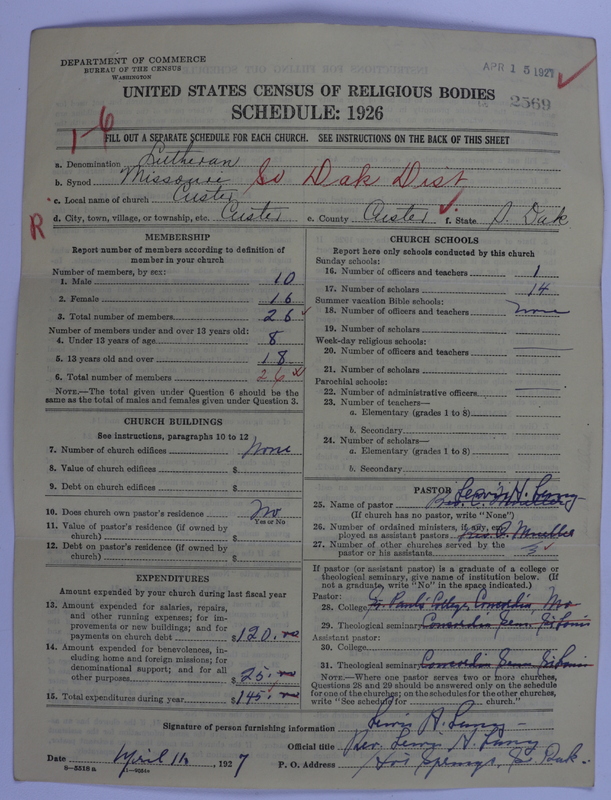 DEPARTMENT OF COMMERCE
BUREAU OF THE CENSUS
WASHINGTON
APR 15 1927
UNITED STATES CENSUS OF RELIGIOUS BODIES
SCHEDULE: 1926
2569
1-6
FILL OUT A SEPARATE SCHEDULE FOR EACH CHURCH. SEE INSTRUCTIONS ON THE BACK OF THIS SHEET
a. Denomination Lutheran
b. Synod Missouri So Dak Dist
c. Local name of church Custer
R
d. City, town, village, or township, etc. Custer e. County Custer f. State S. Dak
MEMBERSHIP
Report number of members according to definition of member in your church
Number of members, by sex:
1. Male 10
2. Female 16
3. Total number of members 26
Number of members under and over 13 years old:
4. Under 13 years of age 8
5. 13 years old and over 18
6. Total number of members 26
NOTE.—The total given under Question 6 should be the same as the total of males and females given under Question 3.
CHURCH BUILDINGS
See instructions, paragraphs 10 to 12
7. Number of church edifices None
8. Value of church edifices $
9. Debt on church edifices $
10. Does church own pastor's residence No
Yes or No
11. Value of pastor's residence (if owned by church) $
12. Debt on pastor's residence (if owned by church) $
EXPENDITURES
Amount expended by church during last fiscal year
13. Amount expended for salaries, repairs, and other running expenses; for improvements or new building; and for payments on church debt $120.
14. Amount expended for benevolences, including home and foreign missions; for denominational support; and for all other purposes $25.
15. Total expenditures during year $145.
CHURCH SCHOOLS
Report here only schools conducted by this church
Sunday schools:
16. Number of officers and teachers 1
17. Number of scholars 14
Summer vacation Bible schools:
18. Number of officers and teachers none
19. Number of scholars
Week-day religious schools:
20. Number of officers and teachers
21. Number of scholars
Parochial schools:
22. Number of administrative officers
23. Number of teachers—
a. Elementary (grades 1 to 8)
b. Secondary
24. Number of scholars—
a. Elementary (grades 1 to 8)
b. Secondary
PASTOR
25. Name of pastor
(If church has no pastor, write "None")
26. Number of ordained ministers, if any, employed as assistant pastors
27. Number of other churches served by the pastor or his assistants
If pastor (or assistant pastor) is a graduate of a college or theological seminary, give name of institution below. (If not a graduate, write "No" in the space indicated.)
Pastor:
28. College St. Pauls College, Concordia, Mo
29. Theological seminary Concordia Sem.
Assistant pastor:
30. College
31. Theological seminary Concordia Sem.
NOTE.—Where one pastor serves two or more churches, Questions 28 and 29 should be answered only on the schedule for one of the churches; on the schedules for the other churches, write "See schedule for church."
Signature of person furnishing information
Official title Rev.
Date April 14, 1927 P. O. Address Hot Springs, So. Dak.
8-5518 a